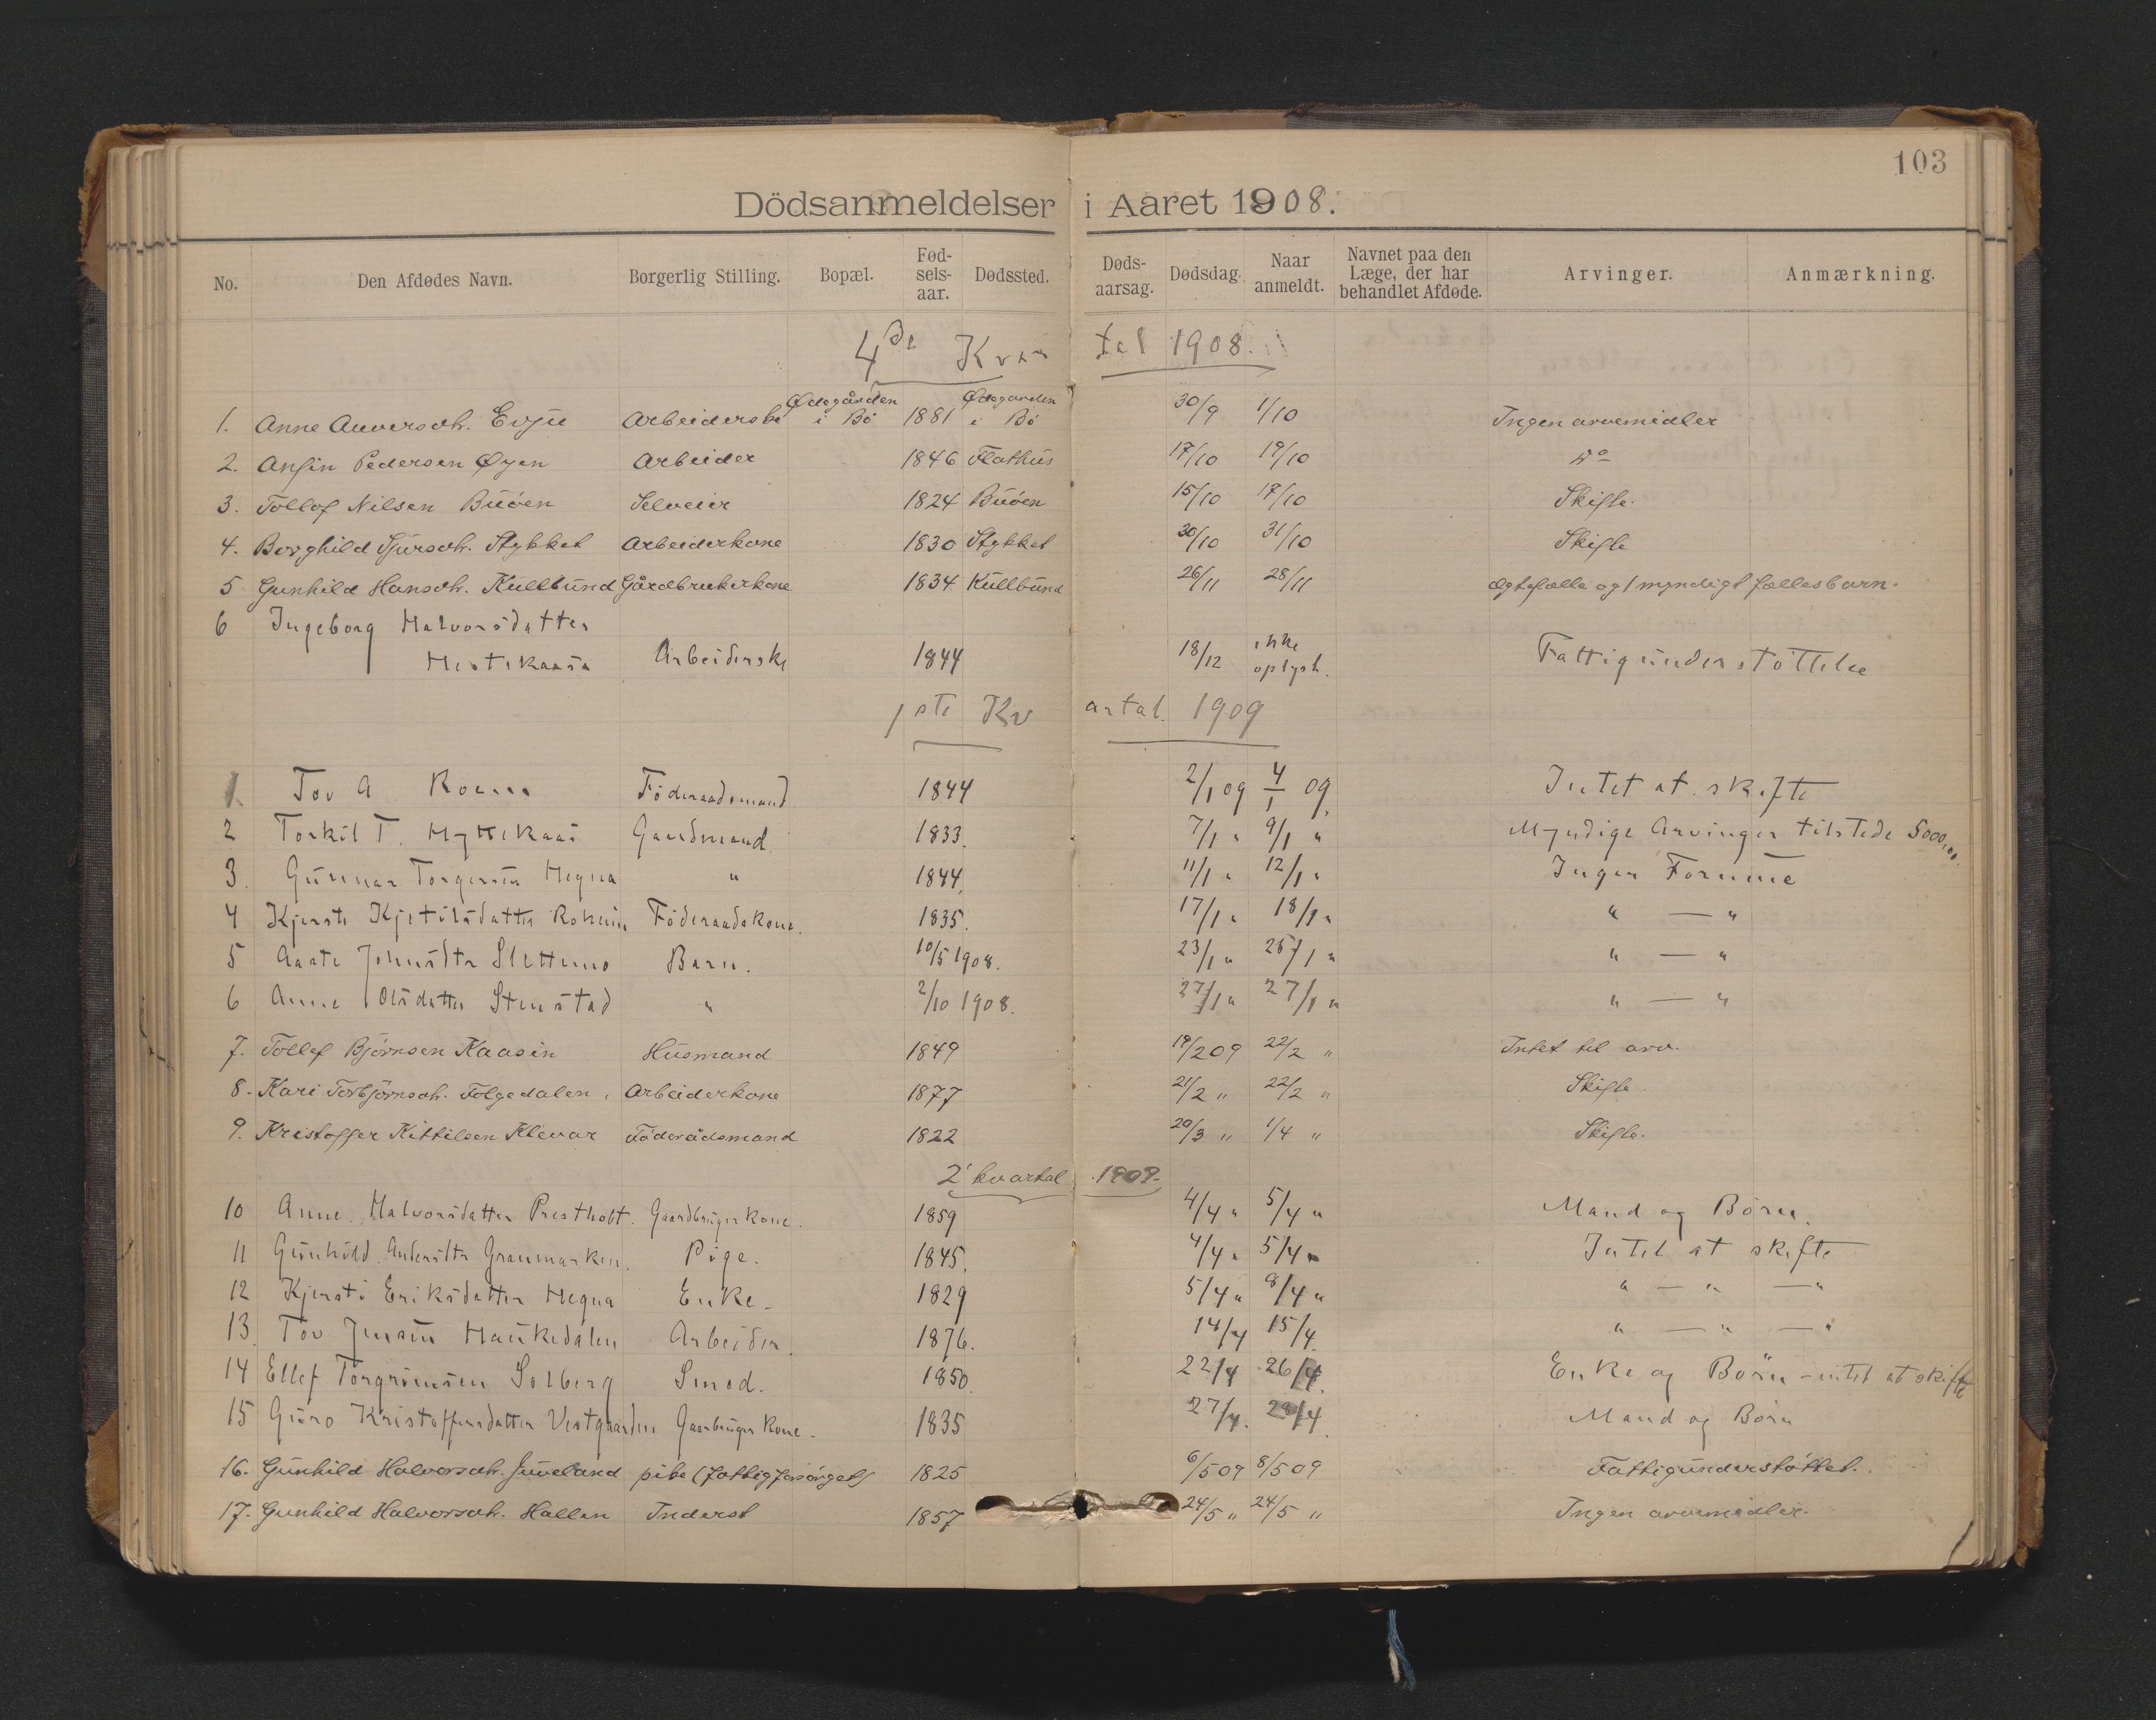 103
Dödsanmeldelser i Aaret 1908.
No. Den Afdødes Navn. Borgerlig Stilling. Bopæl. Fød-sels-aar. Dødssted. Døds-aarsag. Dødsdag. Naar anmeldt. Navnet paa den Læge, der har behandlet Afdøde. Arvinger. Anmærkning.
4de Kvartal 1908.
1. Anne Auversdtr. Evju Arbeiderske Ødegården i Bö 1881 Ødegarden i Bö 30/9 1/10 Ingen arvemidler
2. Anfin Pedersen Øyen Arbeider 1846 Flathus 17/10 19/10 do
3. Tollof Nilsen Buöen Selveier 1824 Buöen 15/10 17/10 Skifte.
4. Borghild Sjursdtr. Stykket Arbeiderkone 1830 Stykket 30/10 31/10 Skifte
5 Gunhild Hansdtr. Kullbund Gårdbrukerkone 1834 Kullbund 26/11 28/11 Ægtefælle og 1 myndigt fællesbarn.
6 Ingeborg Halvorsdatter
Hestekaasa Arbeiderske 1844 18/12 ikke oplyst. Fattigunderstöttelse
1ste Kvartal. 1909
1. Tov A Föderaadsmand 1844 2/1 09 4/1 09. Intet at skifte
2 Torkil T. Hyttekaas Gaardmand 1833. 7/1 " 9/1 " Myndige Arvinger tilstede 5000,00.
3. Gunnar Torgersen Hegna " 1844. 11/1 " 12/1 " Ingen Formue
4 Kjersti Kjetilsdatter Roheim Föderaadskone. 1835. 17/1 " 18/1 " " — "
5 Aaste Johnsdtr Slettemo Barn. 10/5 1908. 23/1 " 25/1 " " — "
6 Anne Olsdatter Stenstad " 2/10 1908. 27/1 " 27/1 " " — "
7. Tollef Björnsen Kaasin Husmand 1849 19/2 09 22/2 " Intet til arv.
8. Kari Torbjörnsdtr. Folgedalen. Arbeiderkone 1877 21/2 " 22/2 " Skifte.
9. Kristoffer Kittilsen Klevar Föderådsmand 1822 20/3 " 1/4 " Skifte.
2' kvartal 1909.
10 Anne Halvorsdatter Prestholt. Gaardbrugerkone. 1859 4/4 " 5/4 " Mand og Börn.
11 Gunhild Andersdtr Granmarken. Pige. 1845. 4/4 " 5/4 " Intet at skifte
12 Kjersti Eriksdatter Hegna Enke - 1829 5/4 " 8/4 " " — " — "
13. Tov Jensen Haukedalen Arbeider. 1876. 14/4 15/4. " — " — "
14 Ellef Torgrimsen Solberg Smed. 1850. 22/4 26/4. Enke og Börn - intet at skifte
15 Guro Kristoffersdatter Vestgaarden Gaarbruger kone. 1835 27/4. 28/4. Mand og Börn
16. Gunhild Halvorsdtr. Juveland pike (fattigforsörget) 1825 6/5 09 8/5 09 Fattigunderstöttet.
17. Gunhild Halvorsdtr. Hallen Inderst 1857 24/5 " 24/5 " Ingen arvemidler.